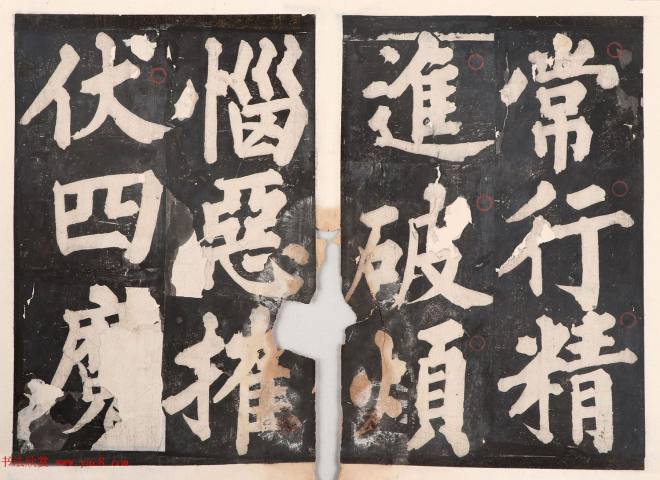 常行精
進破煩
惱惡摧
伏四魔
书法欣赏 www.yac8.com